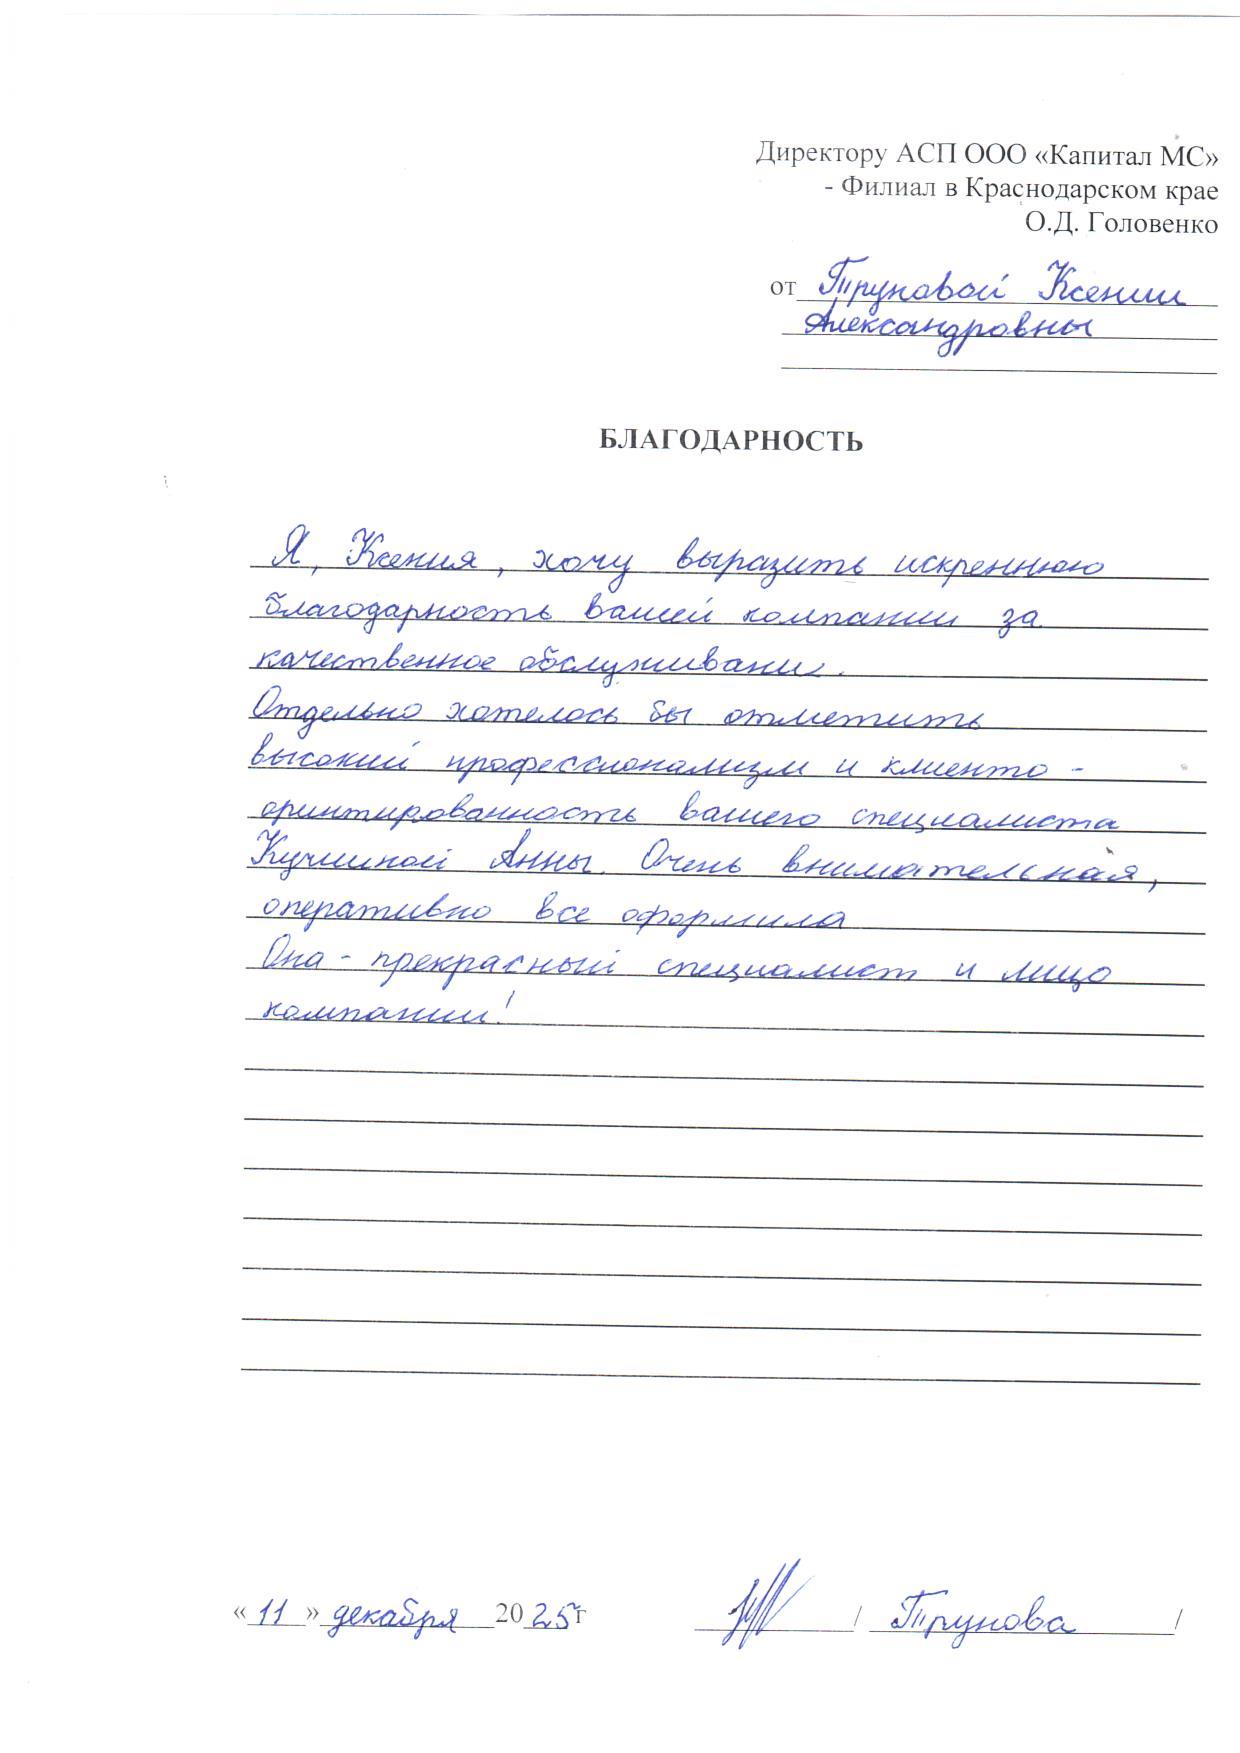 Директору АСП ООО «Капитал МС»
- Филиал в Краснодарском крае
О.Д. Головенко
от Труновой Ксении
Александровны
БЛАГОДАРНОСТЬ
Я, Ксения, хочу выразить искреннюю
благодарность вашей компании за
качественное обслуживание.
Отдельно хотелось бы отметить
высокий профессионализм и клиенто -
ориентированность вашего специалиста
Анны. Очень внимательная,
оперативно все оформила
Она - прекрасный специалист и лицо
компании!
« 11 » декабря 2025г / Трунова /